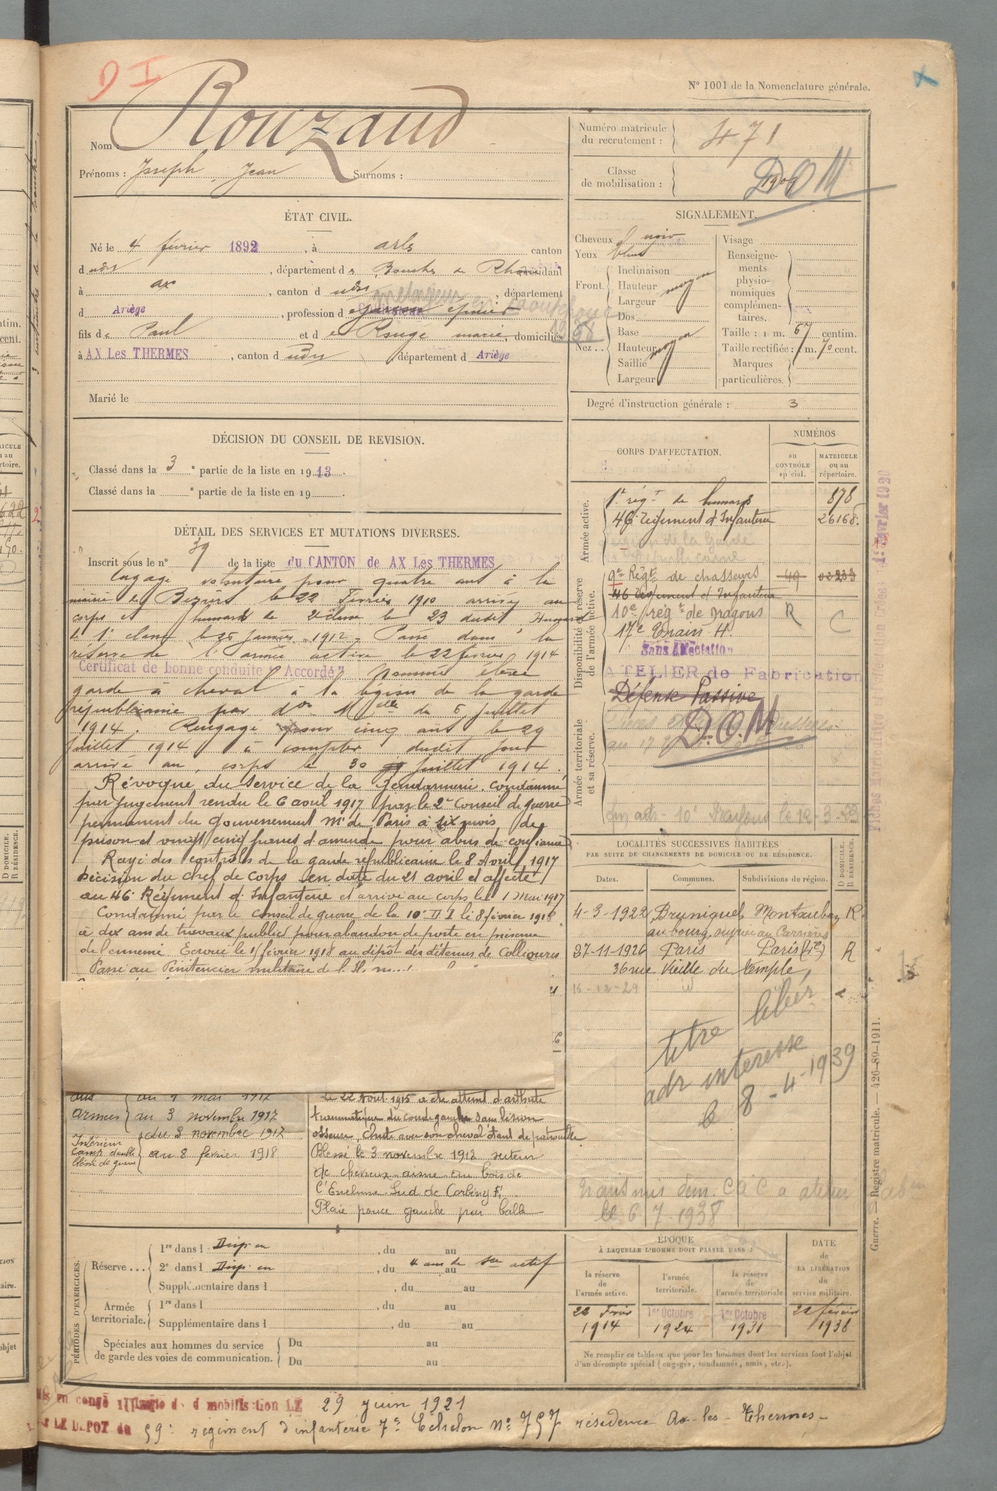 N° 1001 de la Nomenclature générale.
Nom Rouzaud
Prénoms : Joseph, Jean Surnoms :
Numéro matricule du recrutement : 471
Classe de mobilisation :
DOM
ÉTAT CIVIL.
Né le 4 février 1892, à arls canton
d udis, département de Bouches de Rhône
à ax, canton d udis, département
d Ariège, profession d
fils de Paul et de Rouge marie, domicilié
à AX Les THERMES, canton d udis département d Ariège
Marié le
SIGNALEMENT.
Cheveux noir
Yeux bleus
Front. Inclinaison
Hauteur moyen
Largeur
Nez.. Dos
Base
Hauteur moyen
Saillie
Largeur
Visage
Renseignements physionomiques complémentaires.
Taille : 1 m. 67 centim.
Taille rectifiée : 1 m. 70 cent.
Marques particulières.
Degré d'instruction générale : 3
DÉCISION DU CONSEIL DE REVISION.
Classé dans la 3e partie de la liste en 1913.
Classé dans la e partie de la liste en 19
DÉTAIL DES SERVICES ET MUTATIONS DIVERSES.
Inscrit sous le n° 39 de la liste du CANTON de AX Les THERMES
Engagé volontaire pour quatre ans à la
mairie de Beziers le 22 Février 1910 arrivé au
corps et hussard de 2e classe le 23 dudit Hussard
de 1e classe le 25 Janvier 1912. Passé dans la
réserve de l'armée active le 22 février 1914
Certificat de bonne conduite "Accordé" Nommé élève
garde à cheval à la légion de la garde
républicaine par don Mlle du 5 Juillet
1914. Rengagé pour cinq ans le 29
Juillet 1914 à compter dudit jour
arrivé au corps le 30 Juillet 1914.
Révoqué du service de la Gendarmerie. Condamné
par jugement rendu le 6 avril 1917 par le 2e Conseil de guerre
permanent du gouvernement Mre de Paris à six mois de
prison et vingt cinq francs d'amende pour abus de confiance
Rayé des contrôles de la garde républicaine le 8 Avril 1917
Décision du chef de corps en date du 21 avril et affecté
au 46e Régiment d'Infanterie et arrivé au corps le 1 Mai 1917
Condamné par le conseil de guerre de la 10e D I le 8 février 1918
à dix ans de travaux publics pour abandon de poste en présence
de l'ennemi Ecroué le février 1918 au dépôt des détenus de Collioures
Passé au Pénitencier militaire de
CORPS D'AFFECTATION.
NUMÉROS
au CONTRÔLE spécial.
MATRICULE ou au répertoire.
Armée active.
1e régt de hussards 878
46 régiment d'Infanterie 26168
Légion de la Garde
Républicaine
Disponibilité et réserve de l'armée active.
9e Régt de chasseurs 49
46 Régiment d'Infanterie
10e rég t de Dragons R C
17e Train H
Sans Affectation
ATELIER de Fabrication
Armée territoriale et sa réserve.
Défense Passive
D.O.M
LOCALITÉS SUCCESSIVES HABITÉES
PAR SUITE DE CHANGEMENTS DE DOMICILE OU DE RÉSIDENCE.
Dates. Communes. Subdivisions de région. D DOMICILE. R RÉSIDENCE.
4-3-1922 Bruniquel Montauban R
27-11-1926 Paris Paris R
36 rue Vieille du Temple
titre liber
adr interessé
le 8-4-1939
au 1 mai 1917
armées au 3 novembre 1917
Intérieur du 3 novembre 1917
au 8 février 1918
Le 22 Aout 1915 a été atteint d'arthrite
traumatique du coude gauche sans lésion
osseuse, chute avec son cheval étant de patrouille.
Blessé le 3 novembre 1917 secteur
de chevreux arme au bois de
l'Enclume Sud de Corbeny F.
Plaie pouce gauche par balle
Transmis dem. C à C a atelier
le 6-7-1938
PÉRIODES D'EXERCICES.
Réserve... 1re dans l Disp. en , du au
2e dans l Disp. en , du 4 ans de Sce actif
Supplémentaire dans l du au
Armée territoriale. 1re dans l , du au
Supplémentaire dans l , du au
Spéciales aux hommes du service de garde des voies de communication. Du au
Du au
ÉPOQUE
À LAQUELLE L'HOMME DOIT PASSER DANS :
la réserve de l'armée active.
l'armée territoriale.
la réserve de l'armée territoriale.
DATE de LA LIBÉRATION du service militaire.
22 Février 1914
1er Octobre 1924
1er Octobre 1931
22 février 1938
Ne remplir ce tableau que pour les hommes dont les services font l'objet d'un décompte spécial (engagés, condamnés, omis, etc.).
Guerre. Registre matricule. — 426-89-1911.
Mis en congé illimité de démobilisation LE 29 juin 1921
Par LE DEPOT du 59e régiment d'infanterie 7e Echelon N° 757 résidence Ax-les-Thermes